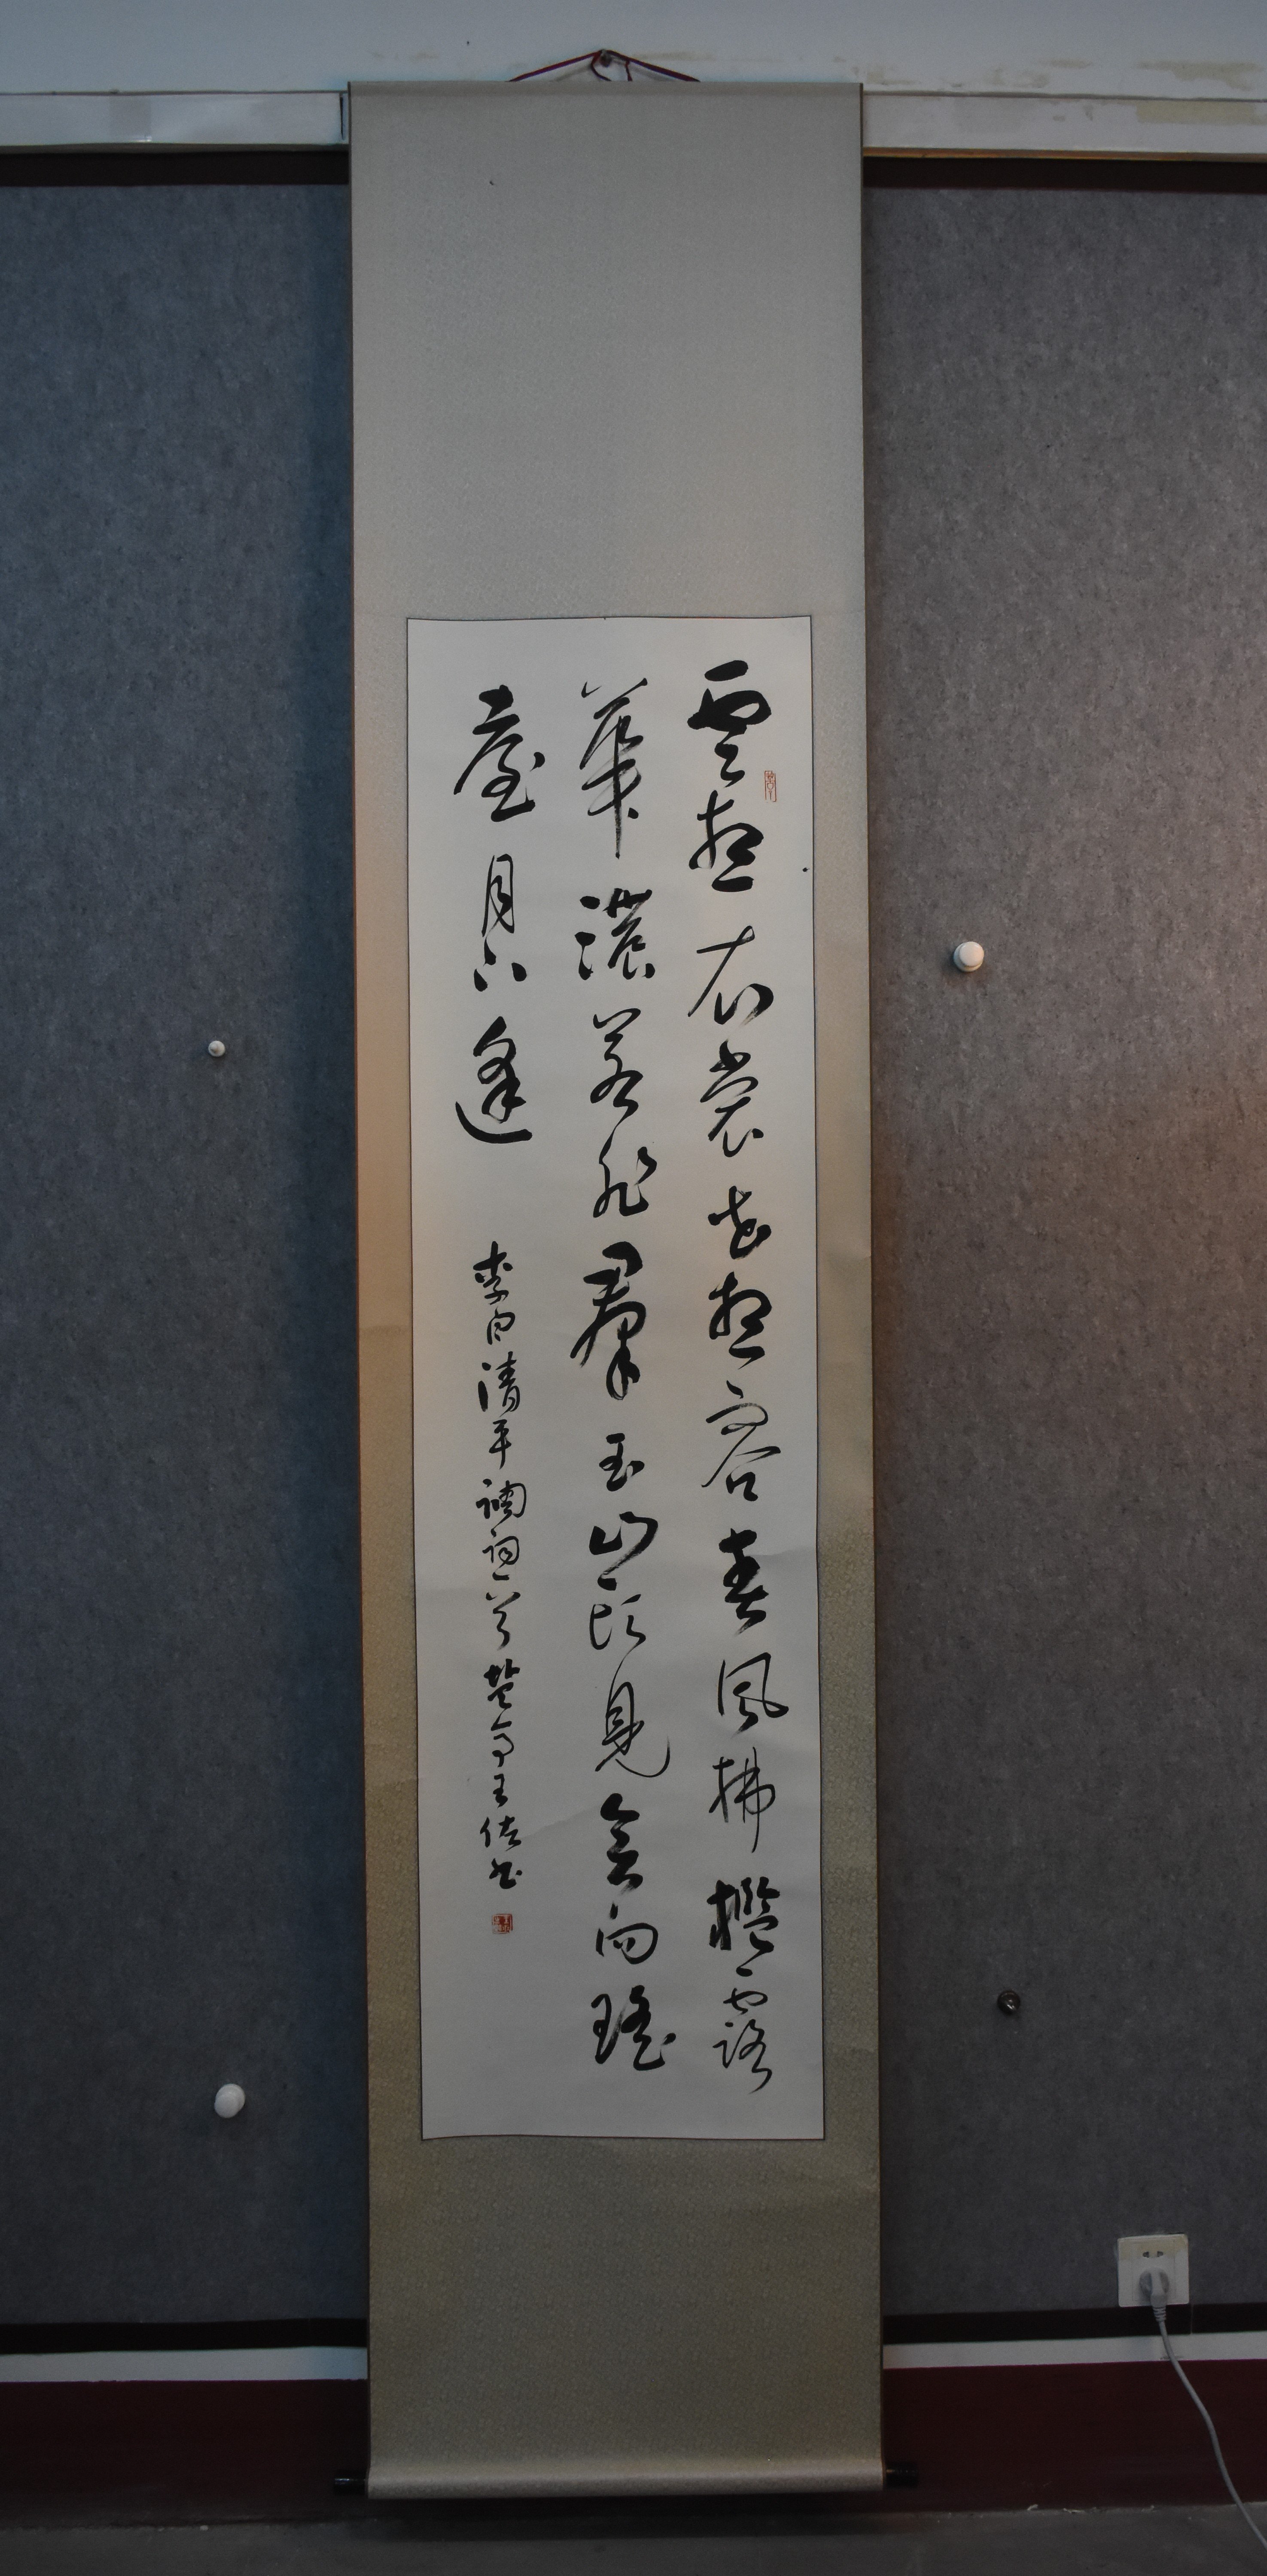 雲想衣裳花想容春風拂檻露
華濃若非羣玉山頭見會向瑤
臺月下逢
李白清平調詞一首 王佑书